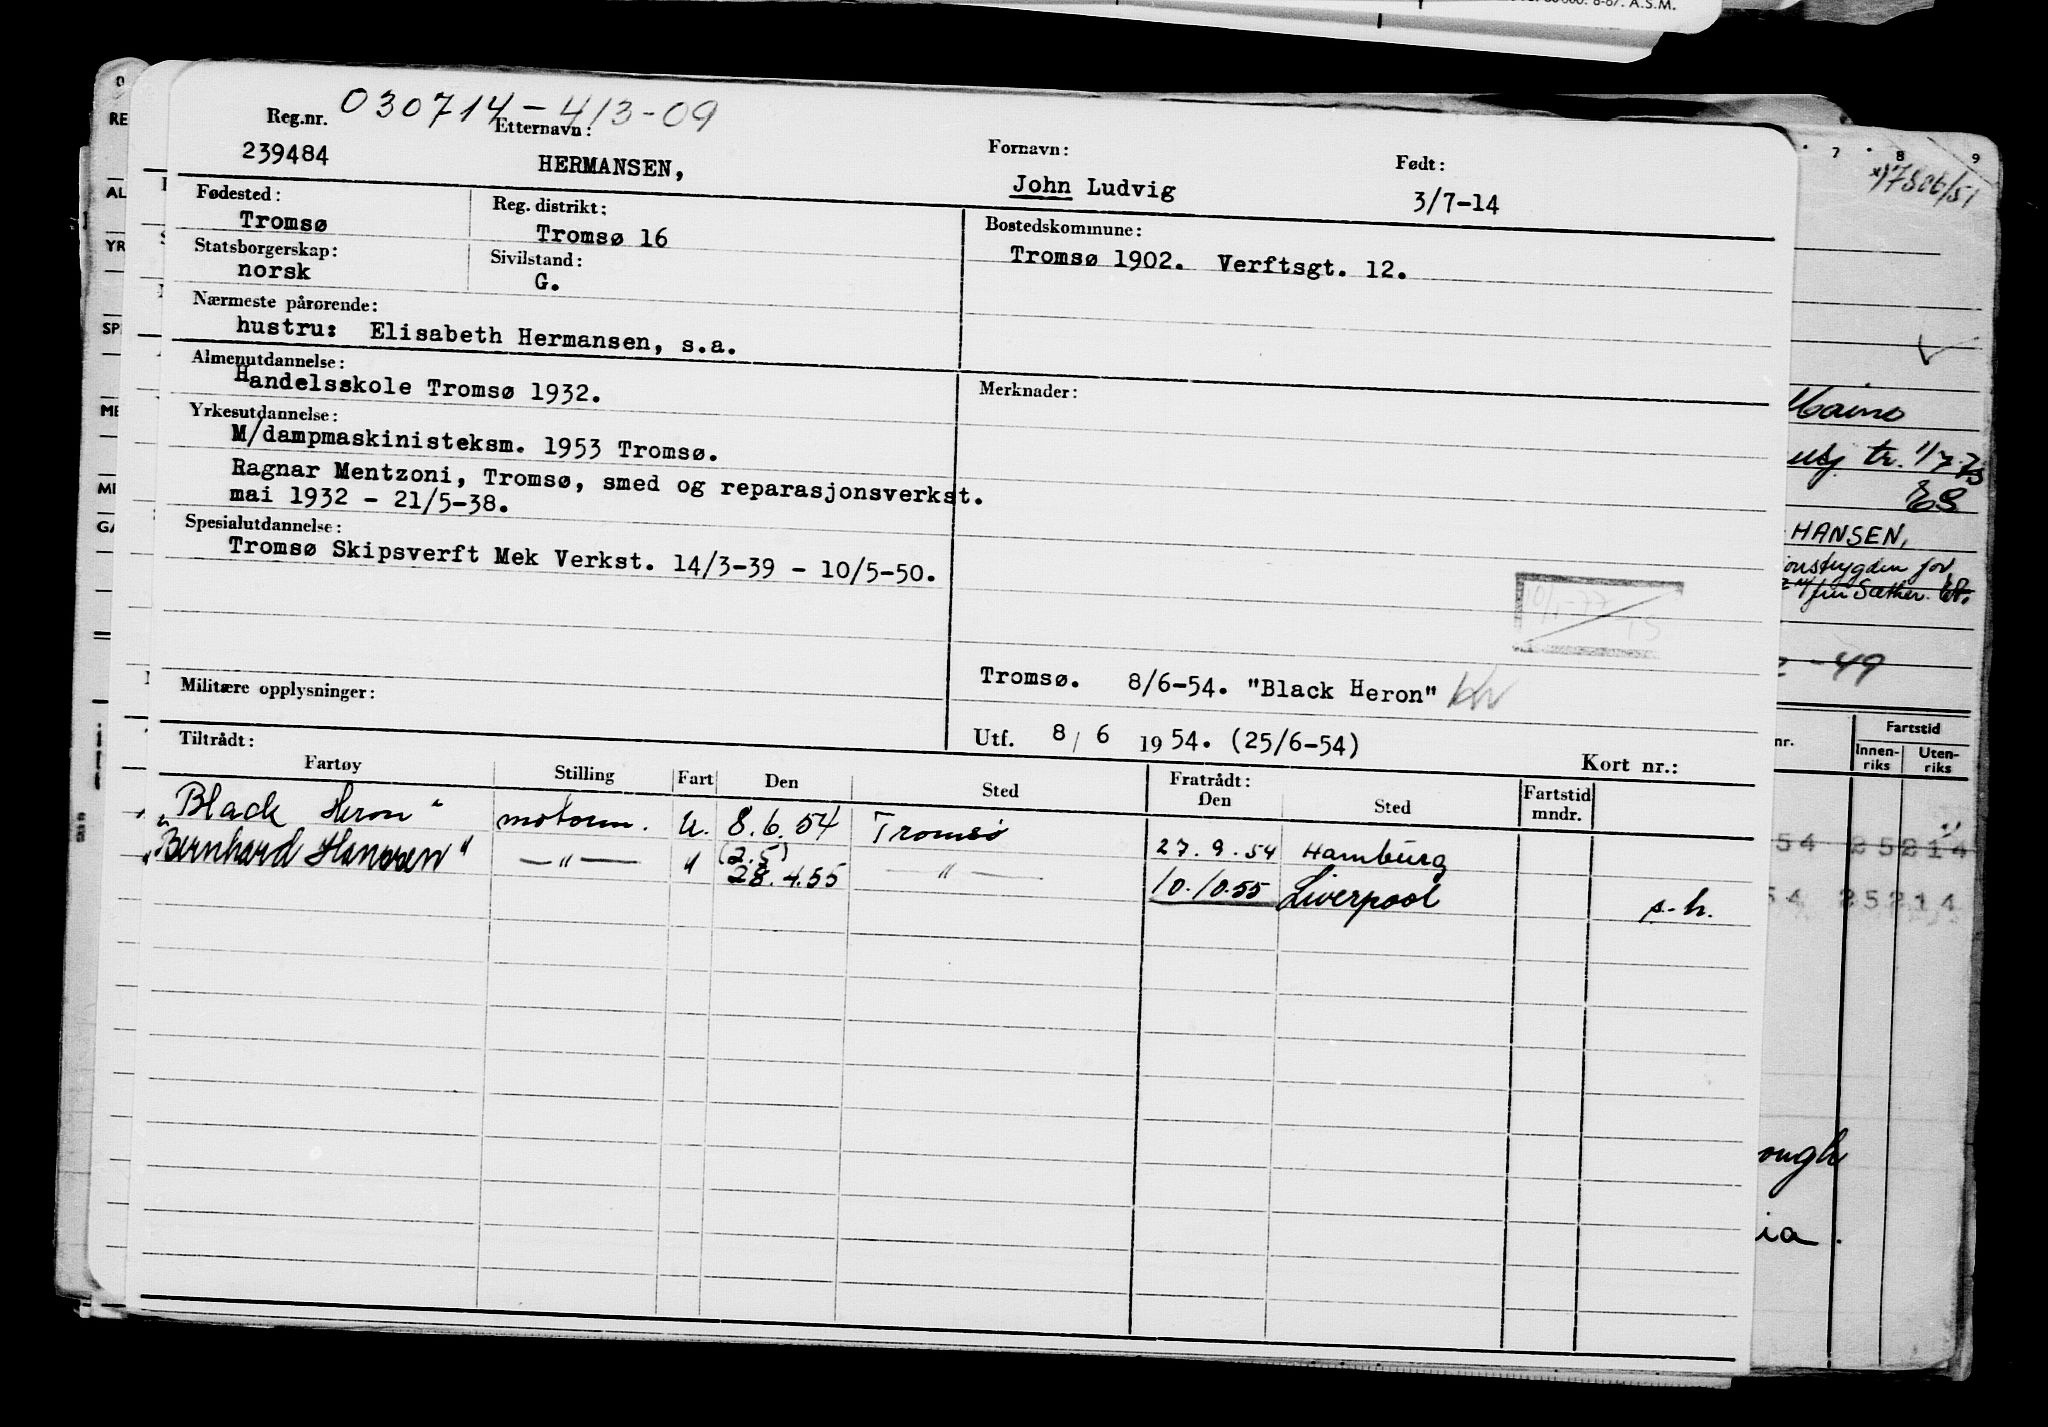 60000. 8-67. A.S.M.
Reg.nr. 030714-413-09
239484
Etternavn:
HERMANSEN,
Fornavn:
John Ludvig
Født:
3/7-14
Fødested:
Tromsø
Reg. distrikt:
Tromsø 16
Bostedskommune:
Tromsø 1902. Verftsgt. 12.
Statsborgerskap:
norsk
Sivilstand:
G.
Nærmeste pårørende:
hustru: Elisabeth Hermansen, s.a.
Almenutdannelse:
Handelsskole Tromsø 1932.
Merknader:
Yrkesutdannelse:
M/dampmaskinisteksm. 1953 Tromsø.
Ragnar Mentzoni, Tromsø, smed og reparasjonsverkst.
mai 1932 - 21/5-38.
Spesialutdannelse:
Tromsø Skipsverft Mek Verkst. 14/3-39 - 10/5-50.
Militære opplysninger:
Tromsø. 8/6-54. "Black Heron"
Utf. 8/6 1954. (25/6-54)
Kort nr.:
Tiltrådt:
Fartøy Stilling Fart Den Sted Fratrådt: Den Sted Fartstid mndr.
"Black Heron" motorm. U. 8.6.54 Tromsø 27.9.54 Hamburg
"Bernhard Hanssen" —"— " (2.5) 28.4.55 —"— 10.10.55 Liverpool s-h.
7 8 9
17806/51
HANSEN,
-49
nr.
Fartstid
Innen-
riks
Uten-
riks
54 25214
54 25214
ough
ia.